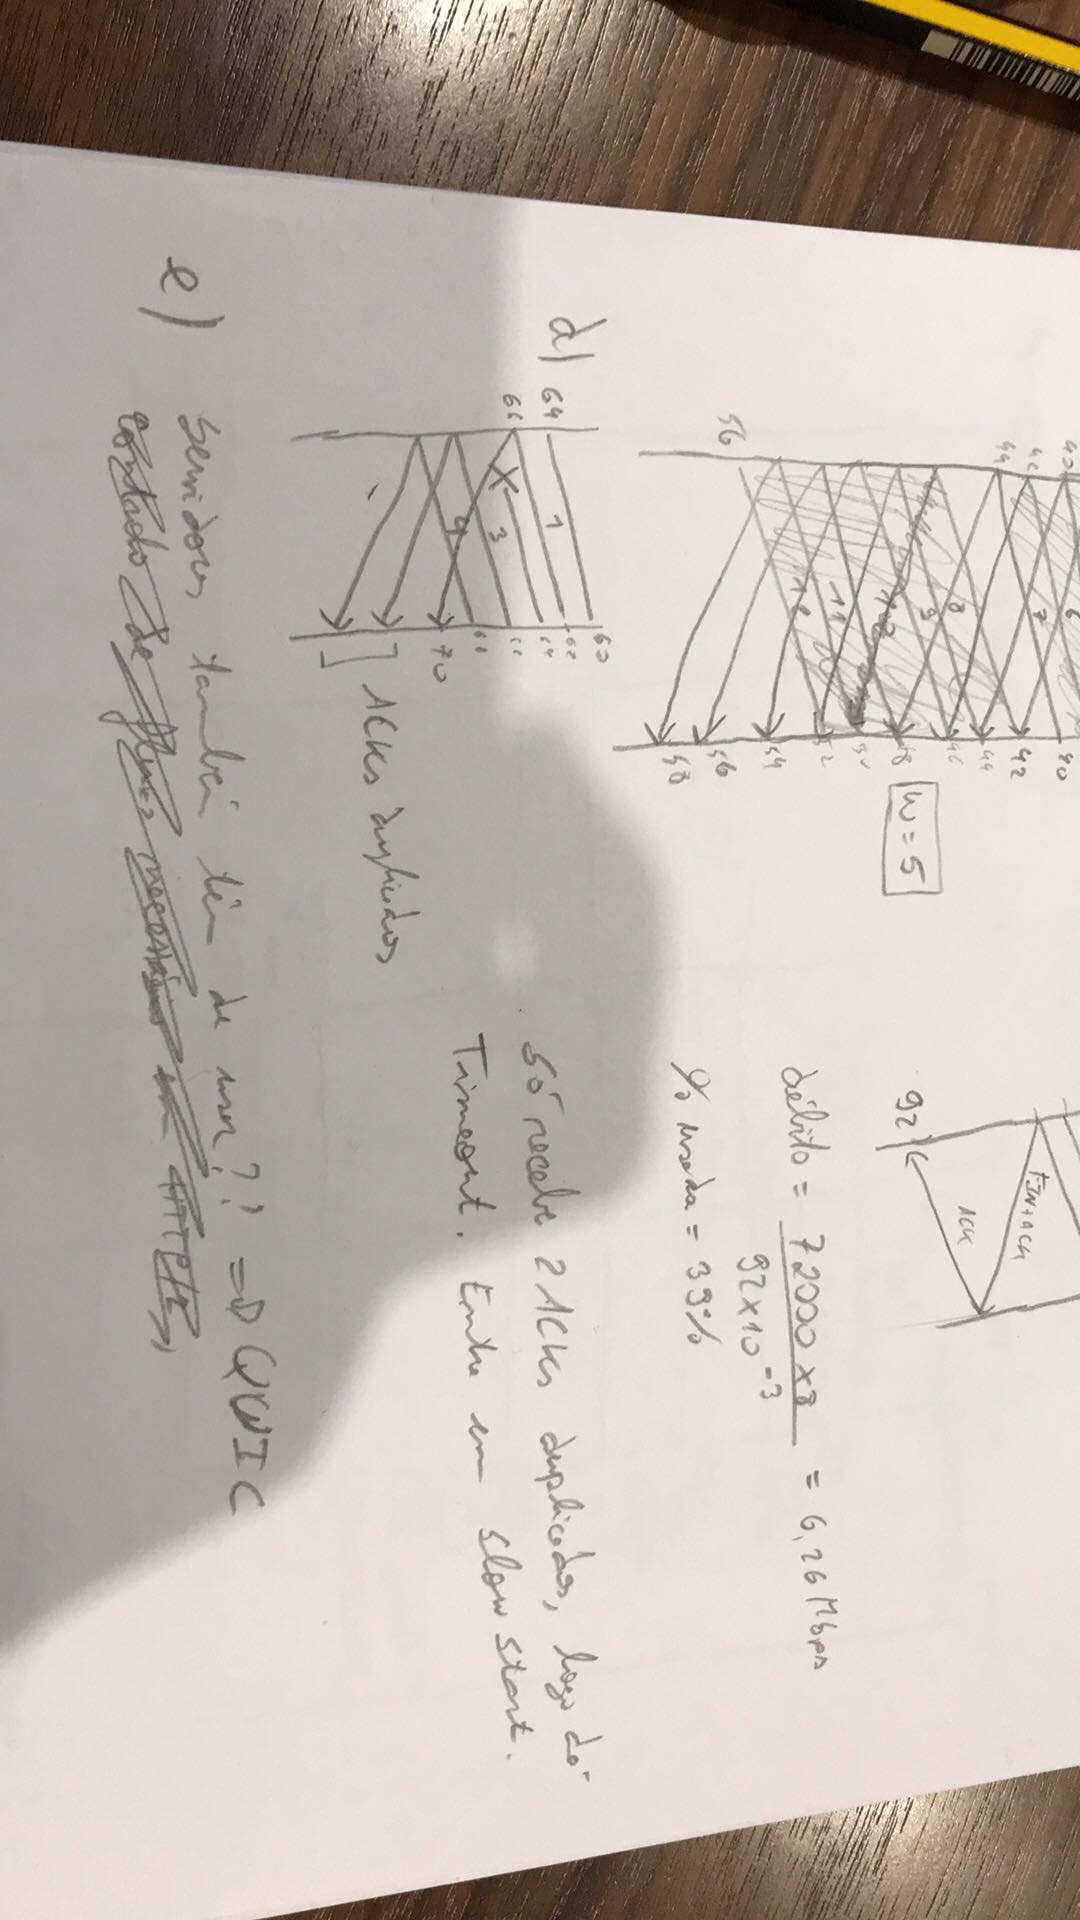 40
6
40
42
7
42
44
44
46
8
9
48
W = 5
10
11
52
12
54
56
56
58
FIN+ACK
ACK
92
débito = 72000 x 8 / 92x10^-3 = 6,26 Mbps
% usada = 39%
d)
60
64
1
62
64
66
X
3
66
68
4
70
ACKs duplicados
Só recebe 2 ACKs duplicados, logo dá
Timeout. Entra em slow start.
e)
Servidores também têm de usar?? => QUIC
controlo de fluxo necessário em HTTP/2,